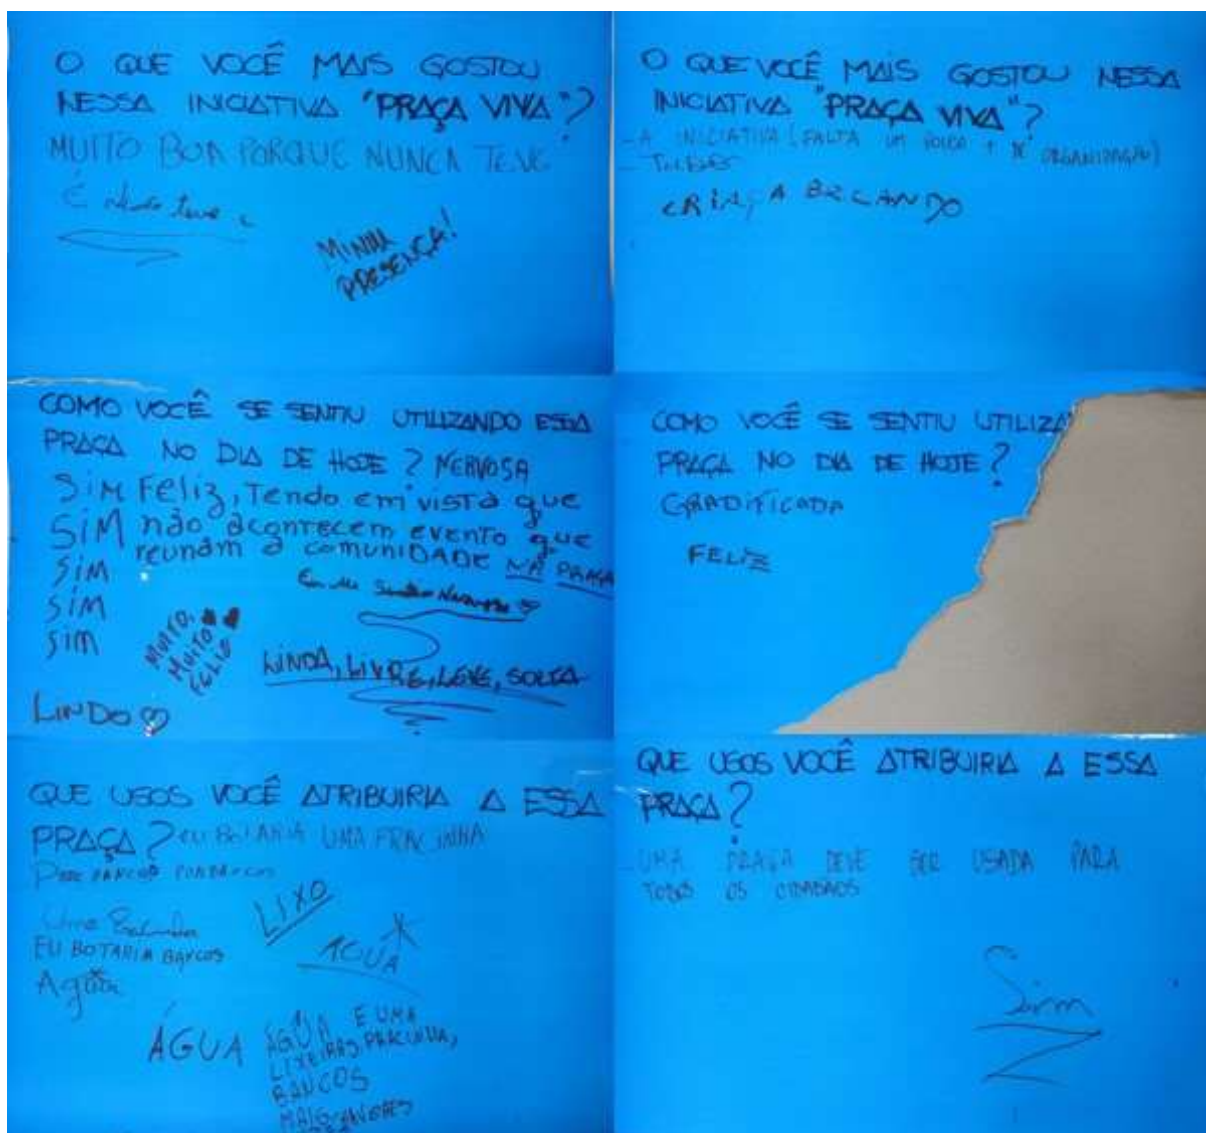 O QUE VOCÊ MAIS GOSTOU
NESSA INICIATIVA "PRAÇA VIVA"?
MUITO BOA PORQUE NUNCA TEVE
É
teve
MINHA
PRESENÇA!
O QUE VOCÊ MAIS GOSTOU NESSA
INICIATIVA "PRAÇA VIVA"?
- A INICIATIVA (FALTA UM POUCO + DE ORGANIZAÇÃO)
CRIAÇA BRCANDO
COMO VOCÊ SE SENTIU UTILIZANDO ESSA
PRAÇA NO DIA DE HOJE? NERVOSA
SIM Feliz, Tendo em vista que
SIM não acontecem evento que
reunam a comunidade NA PRAÇA
SIM
SIM
SIM
MUITO,
MUITO
FELIZ
LINDA, LIVRE, LEVE, SOLTA
LINDO
COMO VOCÊ SE SENTIU UTILIZA
PRAÇA NO DIA DE HOJE?
GRADIFICADA
FELIZ
QUE USOS VOCÊ ATRIBUIRIA A ESSA
PRAÇA? EU BOTARIA UMA PRACINHA
Uma
EU BOTARIA BANCOS
Agua
LIXO
AGUA
ÁGUA
ÁGUA E UMA
LIXEIRAS PRACINHA,
BANCOS
MAIS
QUE USOS VOCÊ ATRIBUIRIA A ESSA
PRAÇA?
- UMA PRAÇA DEVE SER USADA PARA
TODOS OS CIDADÃOS
Sim